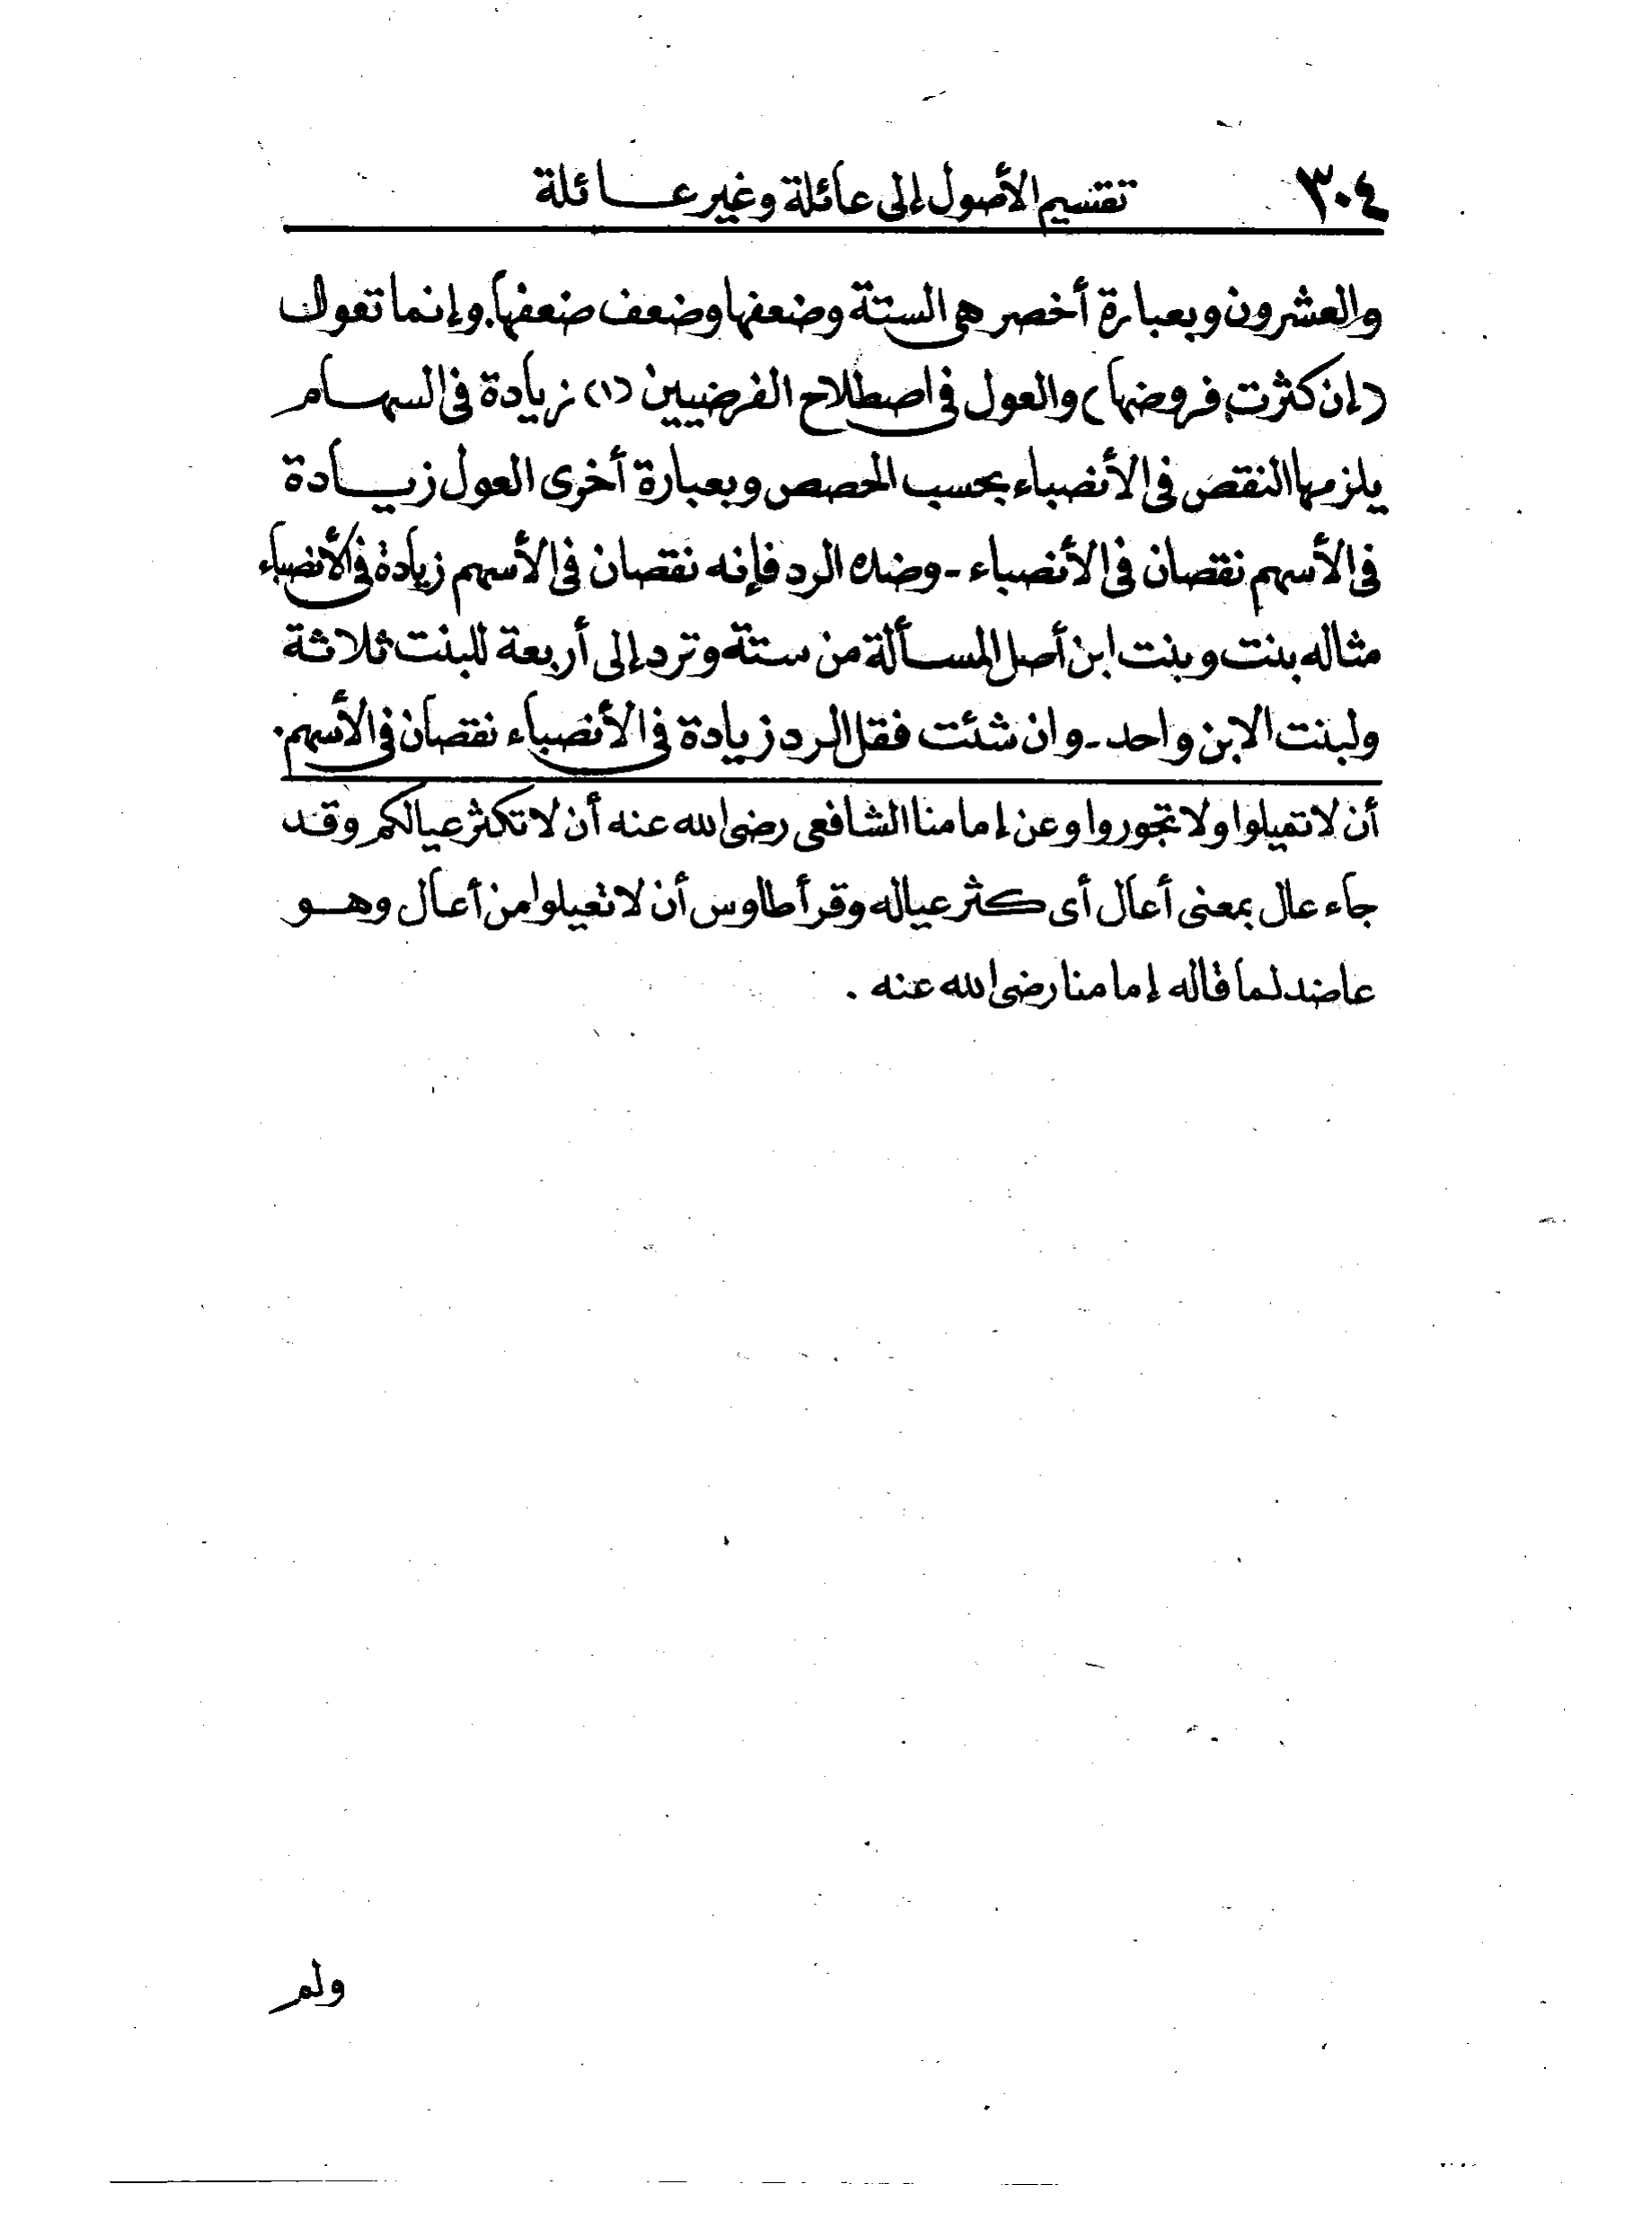 ٣٠٤ تقسيم الأصول إلى عائلة وغير عائلة
والعشرون وبعبارة أخصر هى الستة وضعفها وضعف ضعفها. وإنما تعول
(إن كثرت فروضها) والعول فى اصطلاح الفرضيين (١) زيادة فى السهام
يلزمها النقص فى الأنصباء بحسب الحصص وبعبارة أخرى العول زيادة
فى الأسهم نقصان فى الأنصباء - وضده الرد فإنه نقصان فى الأسهم زيادة فى الأنصباء
مثاله بنت وبنت ابن أصل المسألة من ستة وترد إلى أربعة للبنت ثلاثة
ولبنت الابن واحد - وان شئت فقل الرد زيادة فى الأنصباء نقصان فى الأسهم.
أن لا تميلوا ولا تجوروا وعن إمامنا الشافعى رضى الله عنه أن لا تكثر عيالكم وقد
جاء عال بمعنى أعال أى كثر عياله وقرأ طاوس أن لا تعيلوا من أعال وهو
عاضد لما قاله إمامنا رضى الله عنه .
ولم